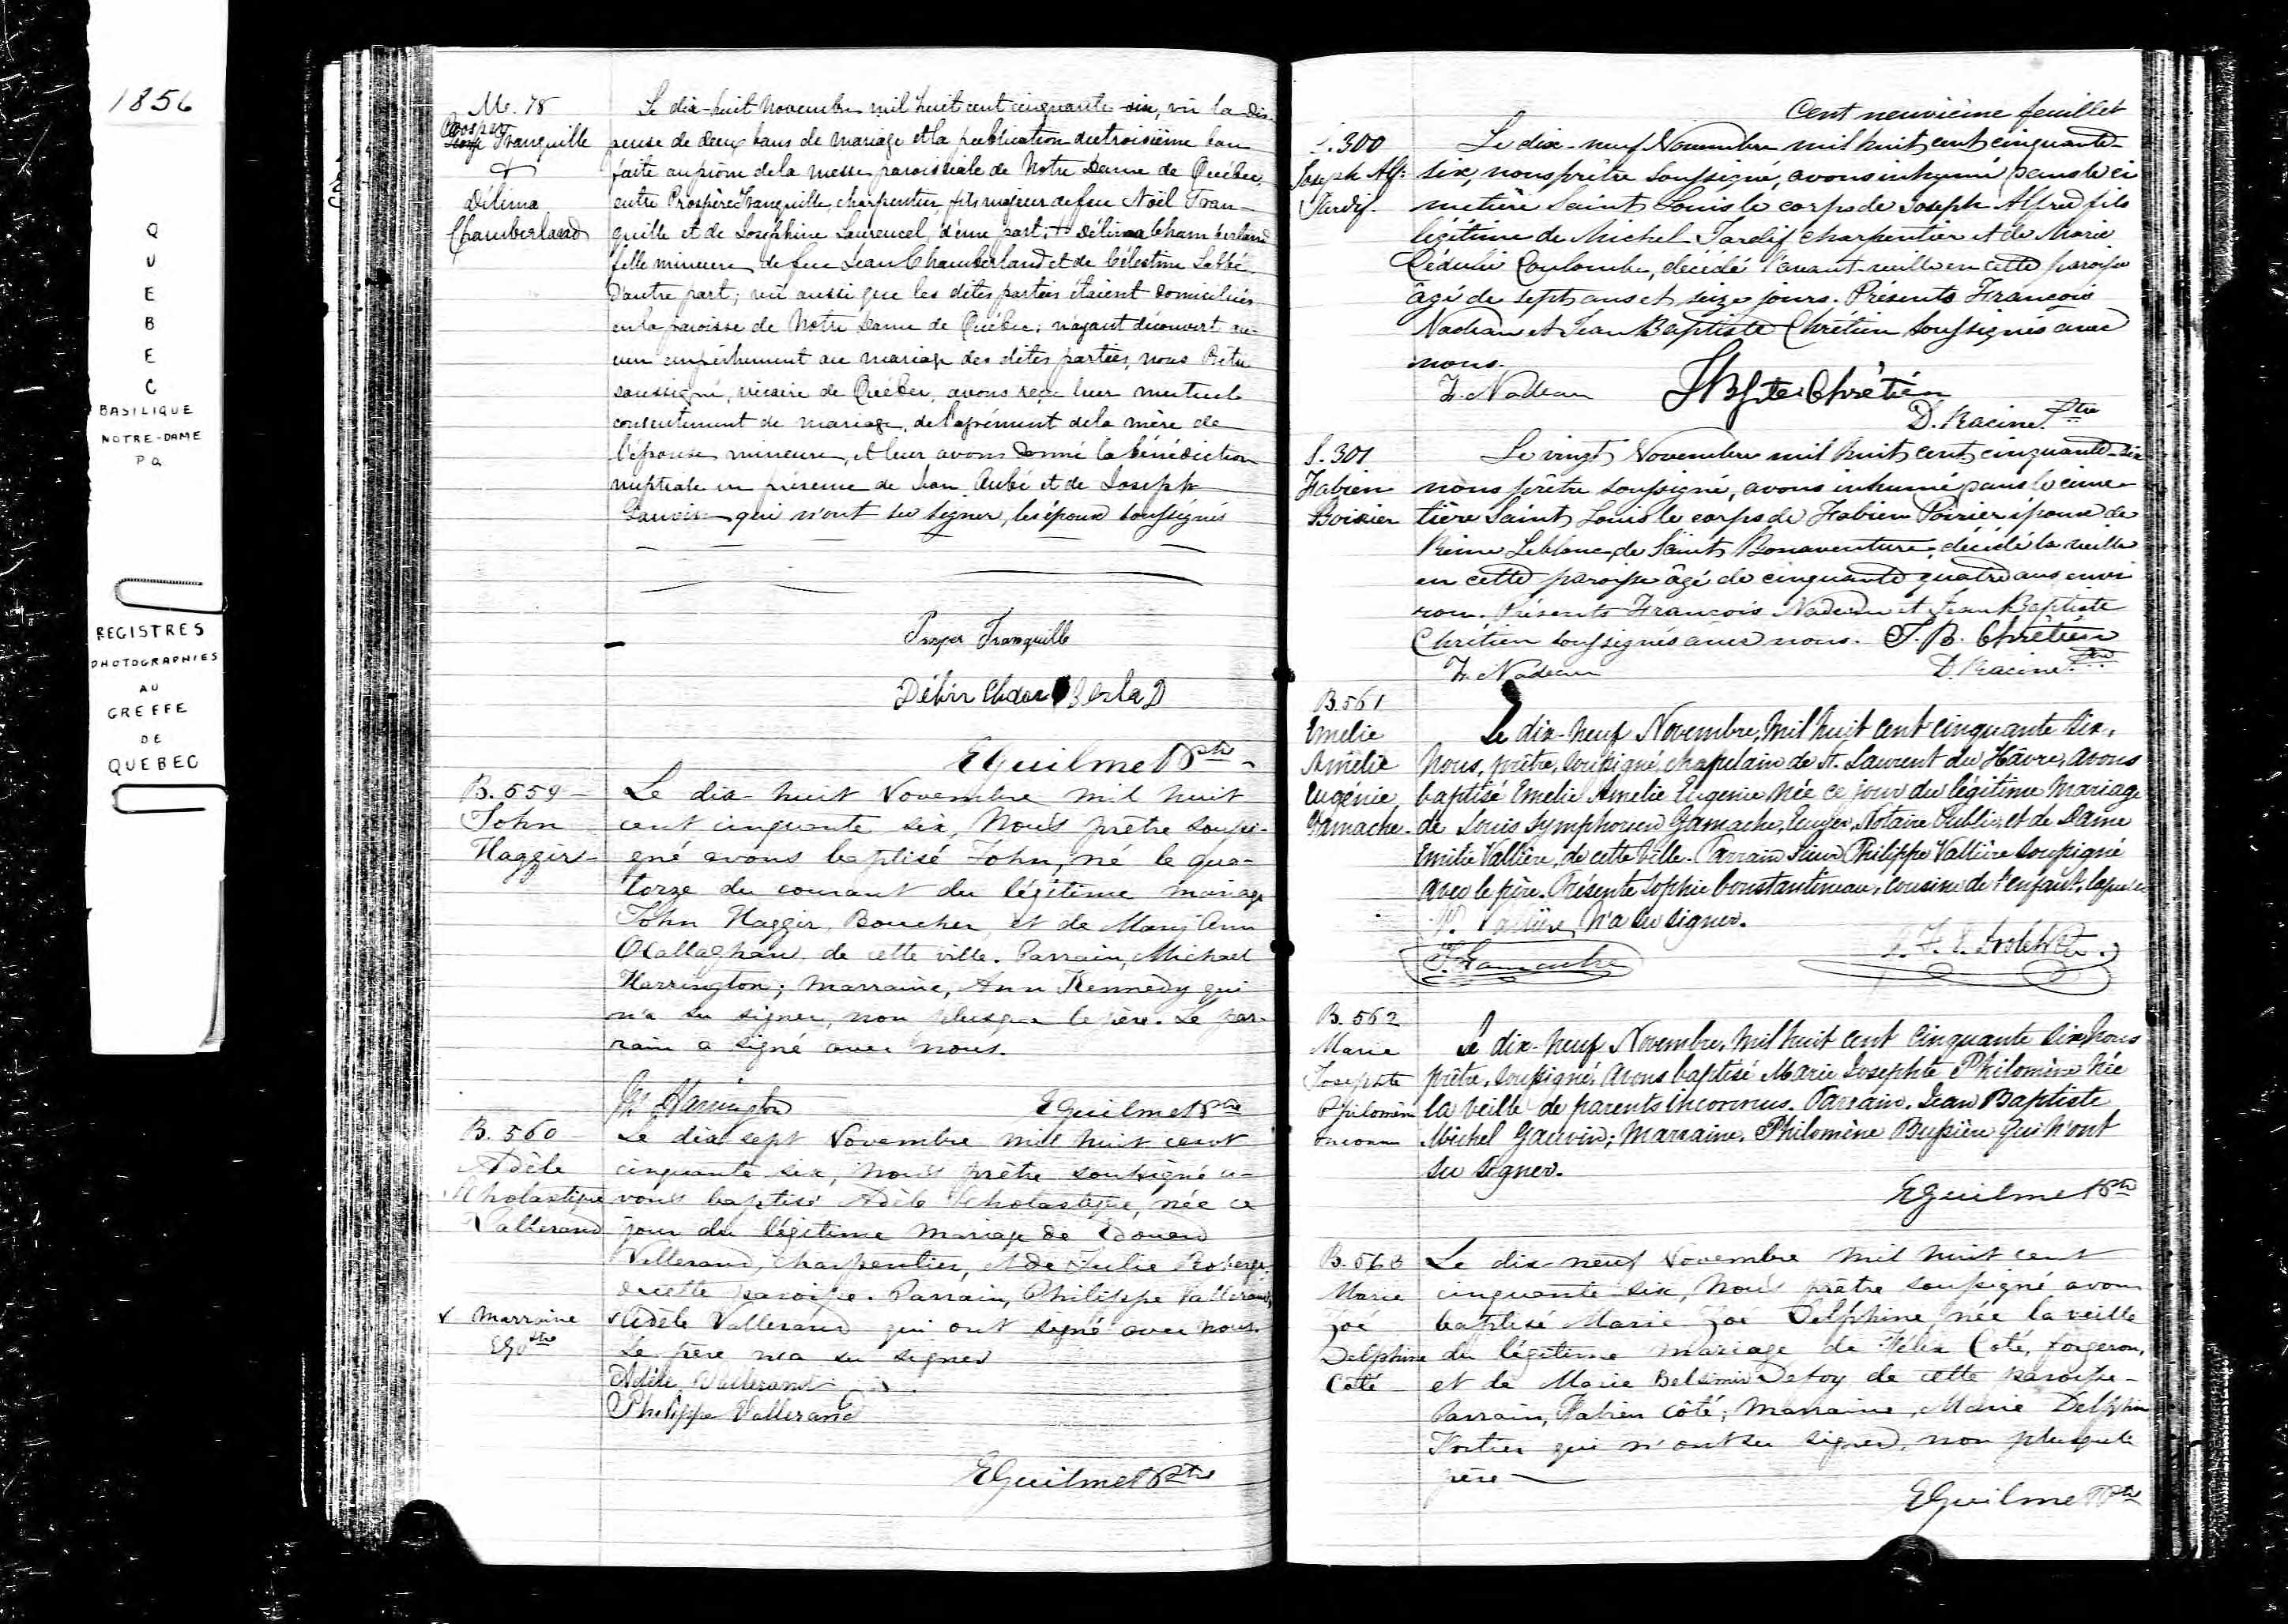 1856
QUEBEC
BASILIQUE
NOTRE-DAME
PQ
REGISTRES
PHOTOGRAPHIES
AU
GREFFE
DE
QUEBEC
M. 78
Prosper
Tranquille
+
Délima
Chamberland
Le dix-huit Novembre mil huit cent cinquante-six, vu la dis-
pense de deux bans de mariage et la publication du troisième ban
faite au prône de la messe paroissiale de Notre Dame de Québec,
entre Prospère Tranquille, charpentier fils majeur de feu Noël Tran-
quille et de Joséphine Laurencel, d'une part; + Délima Chamberland
fille mineure de feu Jean Chamberland et de Célestine Labbé
d'autre part; vu aussi que les dites parties étaient domiciliées
en la paroisse de Notre Dame de Québec; n'ayant découvert au-
cun empêchement au mariage des dites parties, nous Prêtre
soussigné, vicaire de Québec, avons reçu leur mutuel
consentement de mariage, de l'agrément de la mère de
l'épouse mineure, et leur avons donné la bénédiction
nuptiale en présence de Jean Aubé et de Joseph
Gauvin qui n'ont su signer, les époux soussignés
Prosper Tranquille
EGuilmet Ptre
B. 559
John
Haggir
Le dix-huit Novembre mil huit
cent cinquante six, Nous prêtre soussi-
gné avons baptisé John, né le qua-
torze du courant du légitime mariage
John Haggir, Boucher, et de Mary Ann
OCallaghan, de cette ville. Parrain, Michael
Harrington; marraine, Ann Kennedy qui
n'a su signer, non plus que le père. Le par-
rain a signé avec nous.
M Harrington
EGuilmet Ptre
B. 560
Adèle
Scholastique
Vallerand
Le dix sept Novembre mil huit cent
cinquante six, Nous prêtre soussigné a-
vons baptisé Adèle Scholastique, née ce
jour du légitime mariage de Edouard
Vallerand, charpentier, et de Julie Roberge
de cette paroisse. Parrain, Philippe Vallerand,
v marraine
EG Ptre
v Adèle Vallerand qui ont signé avec nous.
Le père n'a su signer
Adèle Vallerand
Philippe Vallerand
EGuilmet Ptre
Cent neuvième feuillet
S. 300
Joseph Alf:
Tardif.
Le dix-neuf Novembre mil huit cent cinquante-
six, nous prêtre soussigné, avons inhumé dans le ci
metière Saint Louis le corps de Joseph Alfred fils
légitime de Michel Tardif charpentier et de Marie
Coulombe, décédé l'avant-veille en cette paroisse
âgé de sept ans et seize jours. Présents François
Nadeau et Jean Baptiste Chrétien soussignés avec
nous.
F. Nadeau
JBste Chrétien
D. Racine Ptre
S. 301
Fabien
Poirier
Le vingt Novembre mil huit cent cinquante-six
nous prêtre soussigné, avons inhumé dans le cime-
tière Saint Louis le corps de Fabien Poirier époux de
Reine Leblanc de Saint Bonaventure, décédé la veille
en cette paroisse âgé de cinquante quatre ans envi
ron. Présents François Nadeau et Jean Baptiste
Chrétien soussignés avec nous. J. B. Chrétien
F. Nadeau
D. Racine Ptre
B. 561
Emelie
Amelie
Eugénie
Gamache.
Le dix-neuf Novembre, mil huit cent cinquante six,
Nous, prêtre, soussigné, chapelain de St. Laurent du Hâvre, avons
baptisé Emelie Amelie Eugenie née ce jour du légitime mariage
de Louis Symphorien Gamache, Ecuyer, Notaire Public, et de Dame
Emilie Vallière, de cette ville. Parrain Sieur Philippe Vallière soussigné
avec le père. Présente Sophie Constantineau, cousine de l'enfant, laquelle
P. Vallière n'a su signer.
Gamache
B. 562
Marie
Josephte
Philomène
inconnu
Le dix-neuf Novembre, mil huit cent cinquante six, nous
prêtre, soussigné, avons baptisé Marie Josephte Philomène née
la veille de parents inconnus. Parrain, Jean Baptiste
Michel Gauvin; marraine, Philomène Bussière qui n'ont
su signer.
EGuilmet Ptre
B. 563
Marie
Zoé
Delphine
Coté
Le dix-neuf Novembre mil huit cent
cinquante-six, Nous prêtre soussigné avons
baptisé Marie Zoé Delphine née la veille
du légitime mariage de Félix Coté, forgeron,
et de Marie Belsimire Defoy de cette paroisse-
Parrain, Fabien Côté; marraine, Marie Delphine
Fortier qui n'ont su signer, non plus que le
père
EGuilmet Ptre